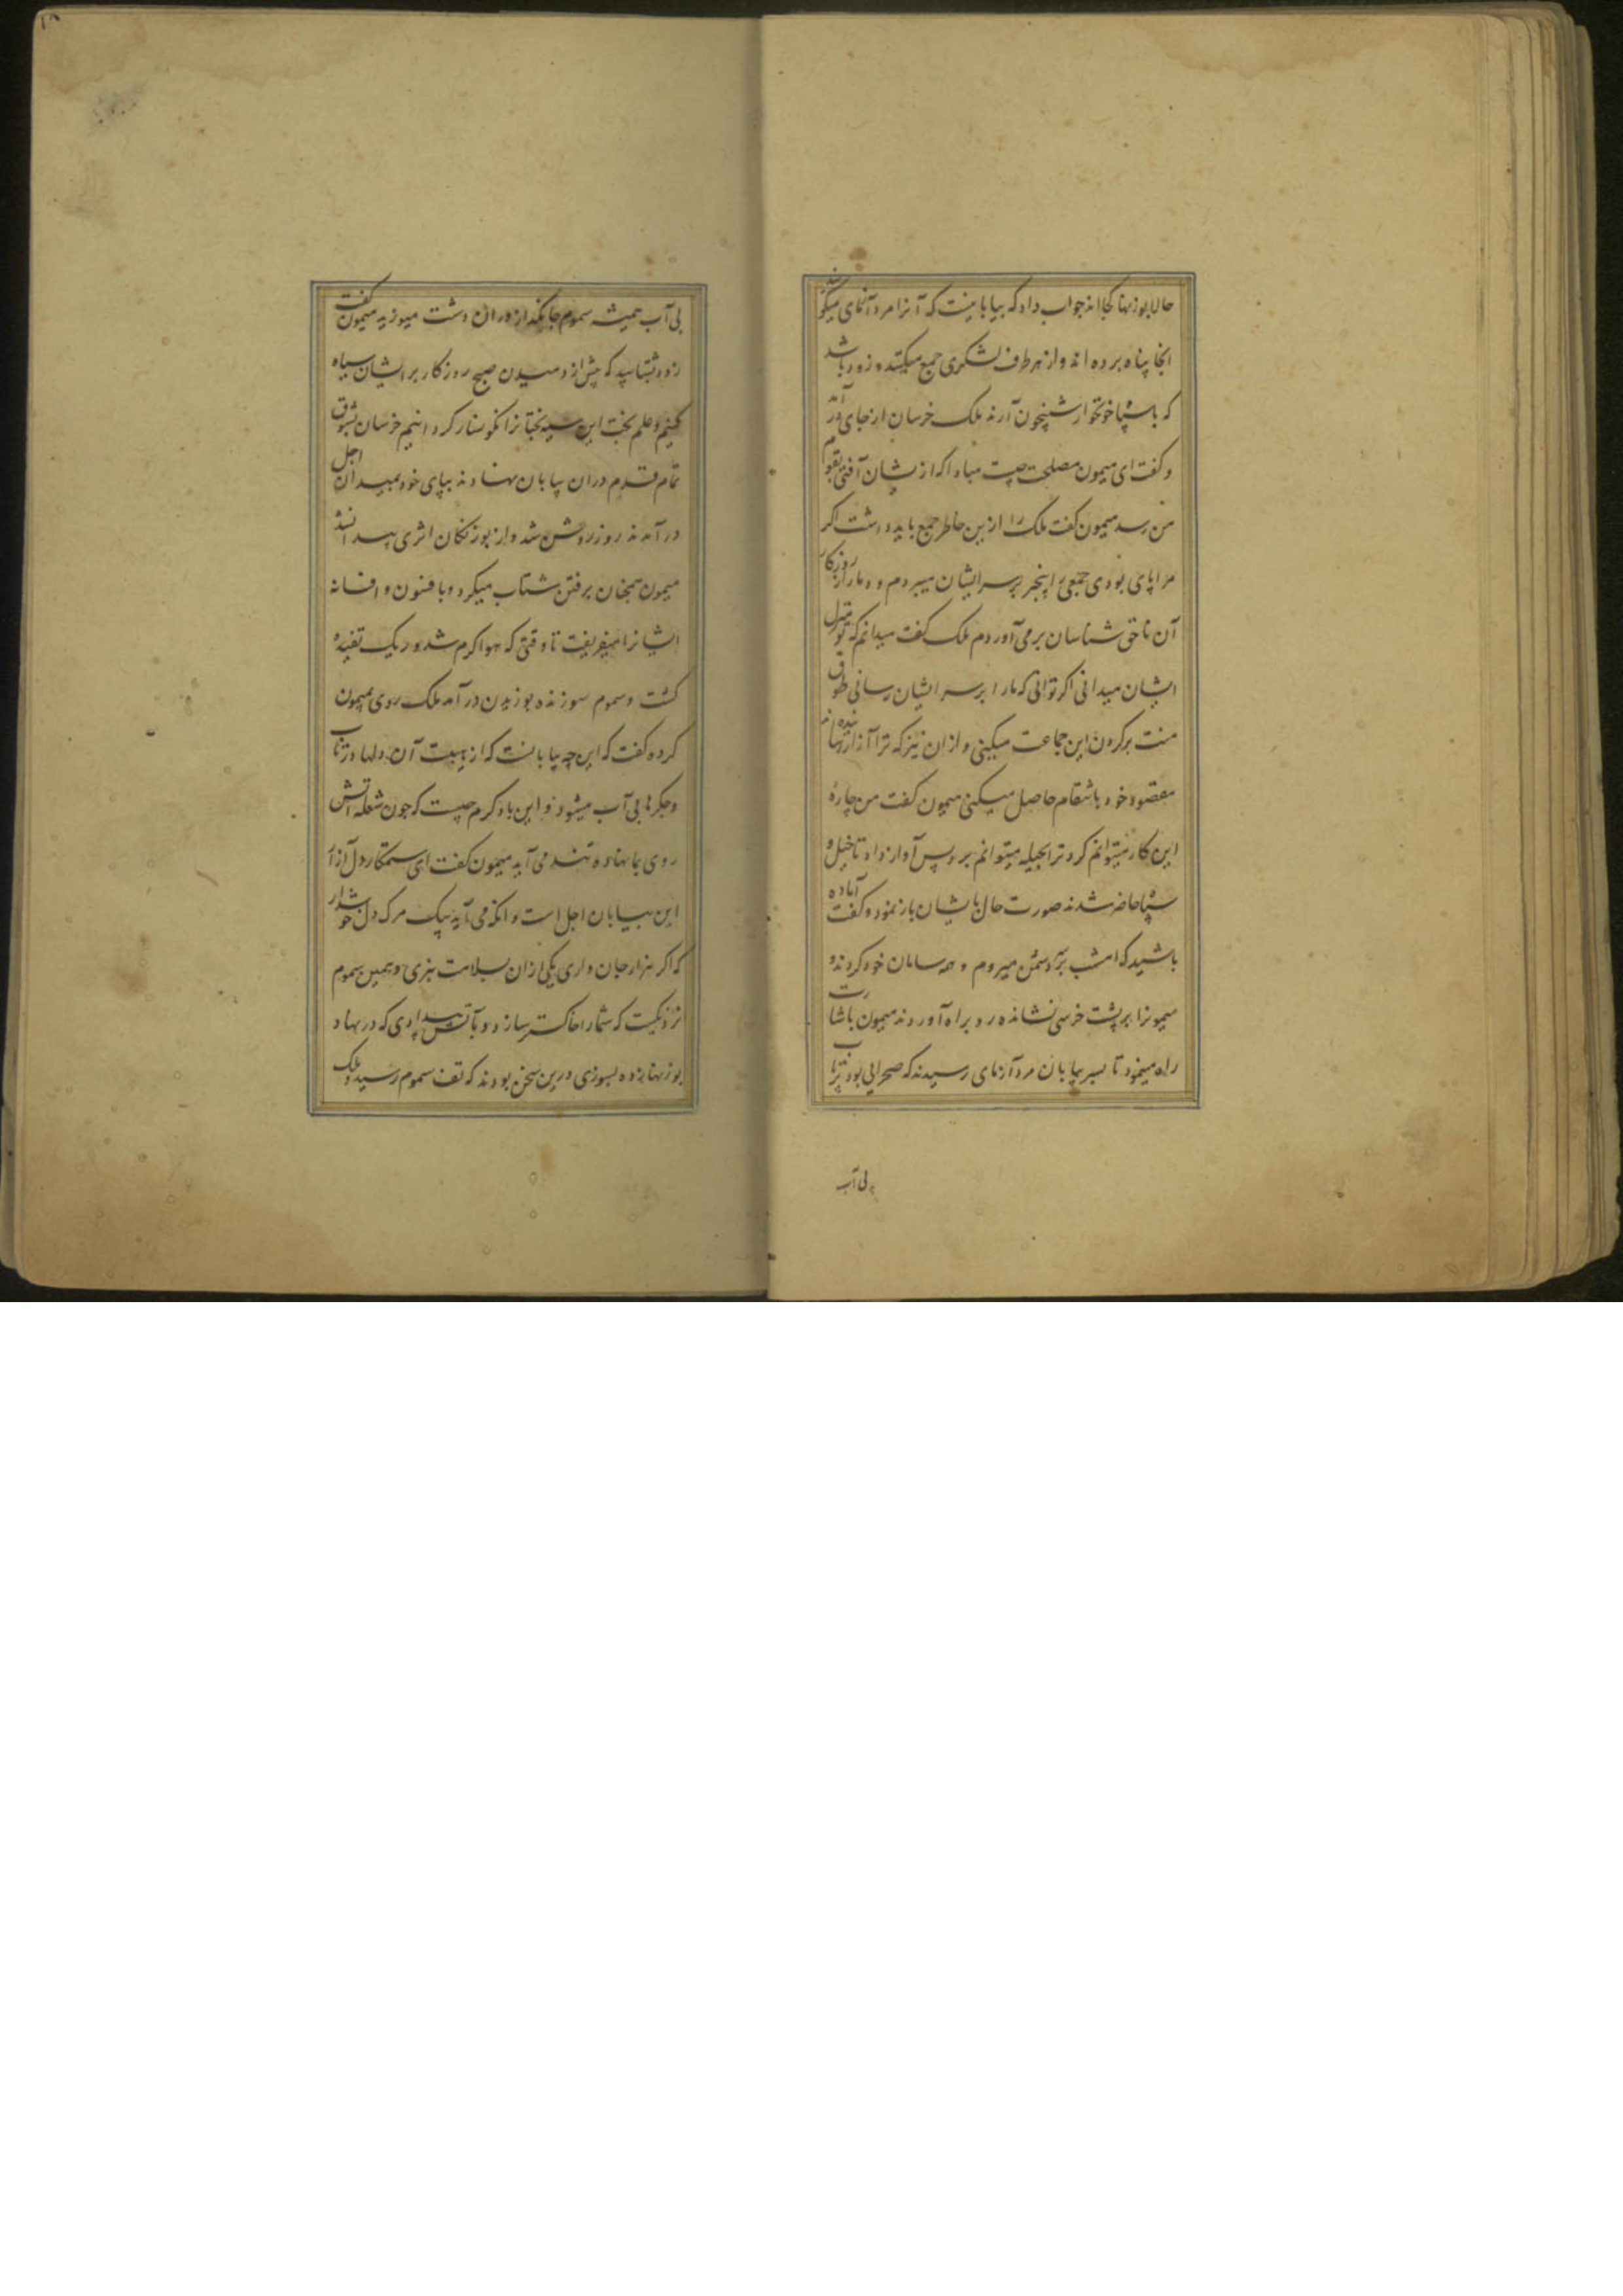 حالا بوزنها کجا اند جواب داد که بیابانیست که آنرا مرد آزمای میگویند
انجا پناه برده اند و از هر طرف لشکری جمع میکنند و زود باشد
که با سپاه خونخوار شبیخون آرند ملک خرسان از جای در آمد
و کفت ای میمون مصلحت چیست مبادا که از یشان آفتی بقوم
من رسد میمون کفت ملک را ازین خاطر جمع باید داشت اکر
مرا پای بودی جمعی را بیخبر بر سر ایشان میبردم و دمار از روزکار
آن ناحق شناسان بر می آوردم ملک کفت میدانم که تو منزل
ایشان میدانی اکر توانی که مارا بر سر ایشان رسانی طوق
منت بر کردن این جماعت میکنی و از ان نیز که ترا آزار رسانیده اند
مقصود خود بانتقام حاصل میکنی میمون کفت من چارهٔ
این کار نمیتوانم کرد ترا بحیله میتوانم برد پس آواز داد تا خیل و
سپاه حاضر شدند صورت حال با یشان باز نمود و کفت آماده
باشید که امشب بر سر دشمن میروم و همه سامان خود کردند و
میمونرا بر پشت خرسی نشانده رو براه آوردند میمون باشارت
راه مینمود تا بسر بیابان مرد آزمای رسیدند که صحرائی بود بیتاب
بی آب
بی آب همیشه سموم جانکداز دران دشت میوزید میمون کفت
زود بشتابید که پیش از دمیدن صبح روزکار بر ایشان سیاه
کنیم و علم بخت این سیه بختانرا نکونسار کردانیم خرسان بشوق
تمام قدم دران بیابان نهادند بپای خود بمیدان اجل
در آمدند روز روشن شد و از بوزنکان اثری پیدا نشد
میمون همچنان برفتن شتاب میکرد و با فسون و افسانه
ایشانرا میفریفت تا وقتی که هوا کرم شد و ریک تفیده
کشت و سموم سوزنده بوزیدن در آمد ملک روی بمیمون
کرده کفت که این چه بیابانست که از هیبت آن دلها در تاب
و جکرها بی آب میشود و این باد کرم چیست که چون شعله آتش
روی بما نهاده تند می آید میمون کفت ای ستمکار دل آزار
این بیابان اجل است و انکه می آید پیک مرک دل خوشدار
که اکر هزار جان داری یکی از ان بسلامت نبری و همین سموم
نزدیکست که شما را خاکستر سازد و بآتش بیدادی که در نهاد
بوزنها زده بسوزی درین سخن بودند که تف سموم رسید و ملک